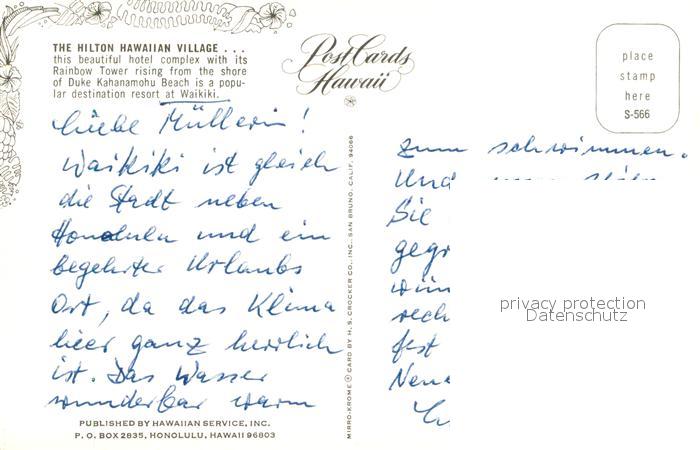 THE HILTON HAWAIIAN VILLAGE . . .
this beautiful hotel complex with its
Rainbow Tower rising from the shore
of Duke Kahanamohu Beach is a popu-
lar destination resort at Waikiki.
Post Cards
Hawaii
place
stamp
here
S-566
Liebe Müllerin!
Waikiki ist gleich
die Stadt neben
Honolulu und ein
begehrter Urlaubs
Ort, da das Klima
hier ganz herrlich
ist. Das Wasser
wunderbar warm
PUBLISHED BY HAWAIIAN SERVICE, INC.
P. O. BOX 2835, HONOLULU, HAWAII 96803
MIRRO-KROME® CARD BY H. S. CROCKER CO., INC. SAN BRUNO, CALIF. 94066
zum schwimmen.
Und
Sie
gegr
wün
rech
fest
Neu
privacy protection
Datenschutz